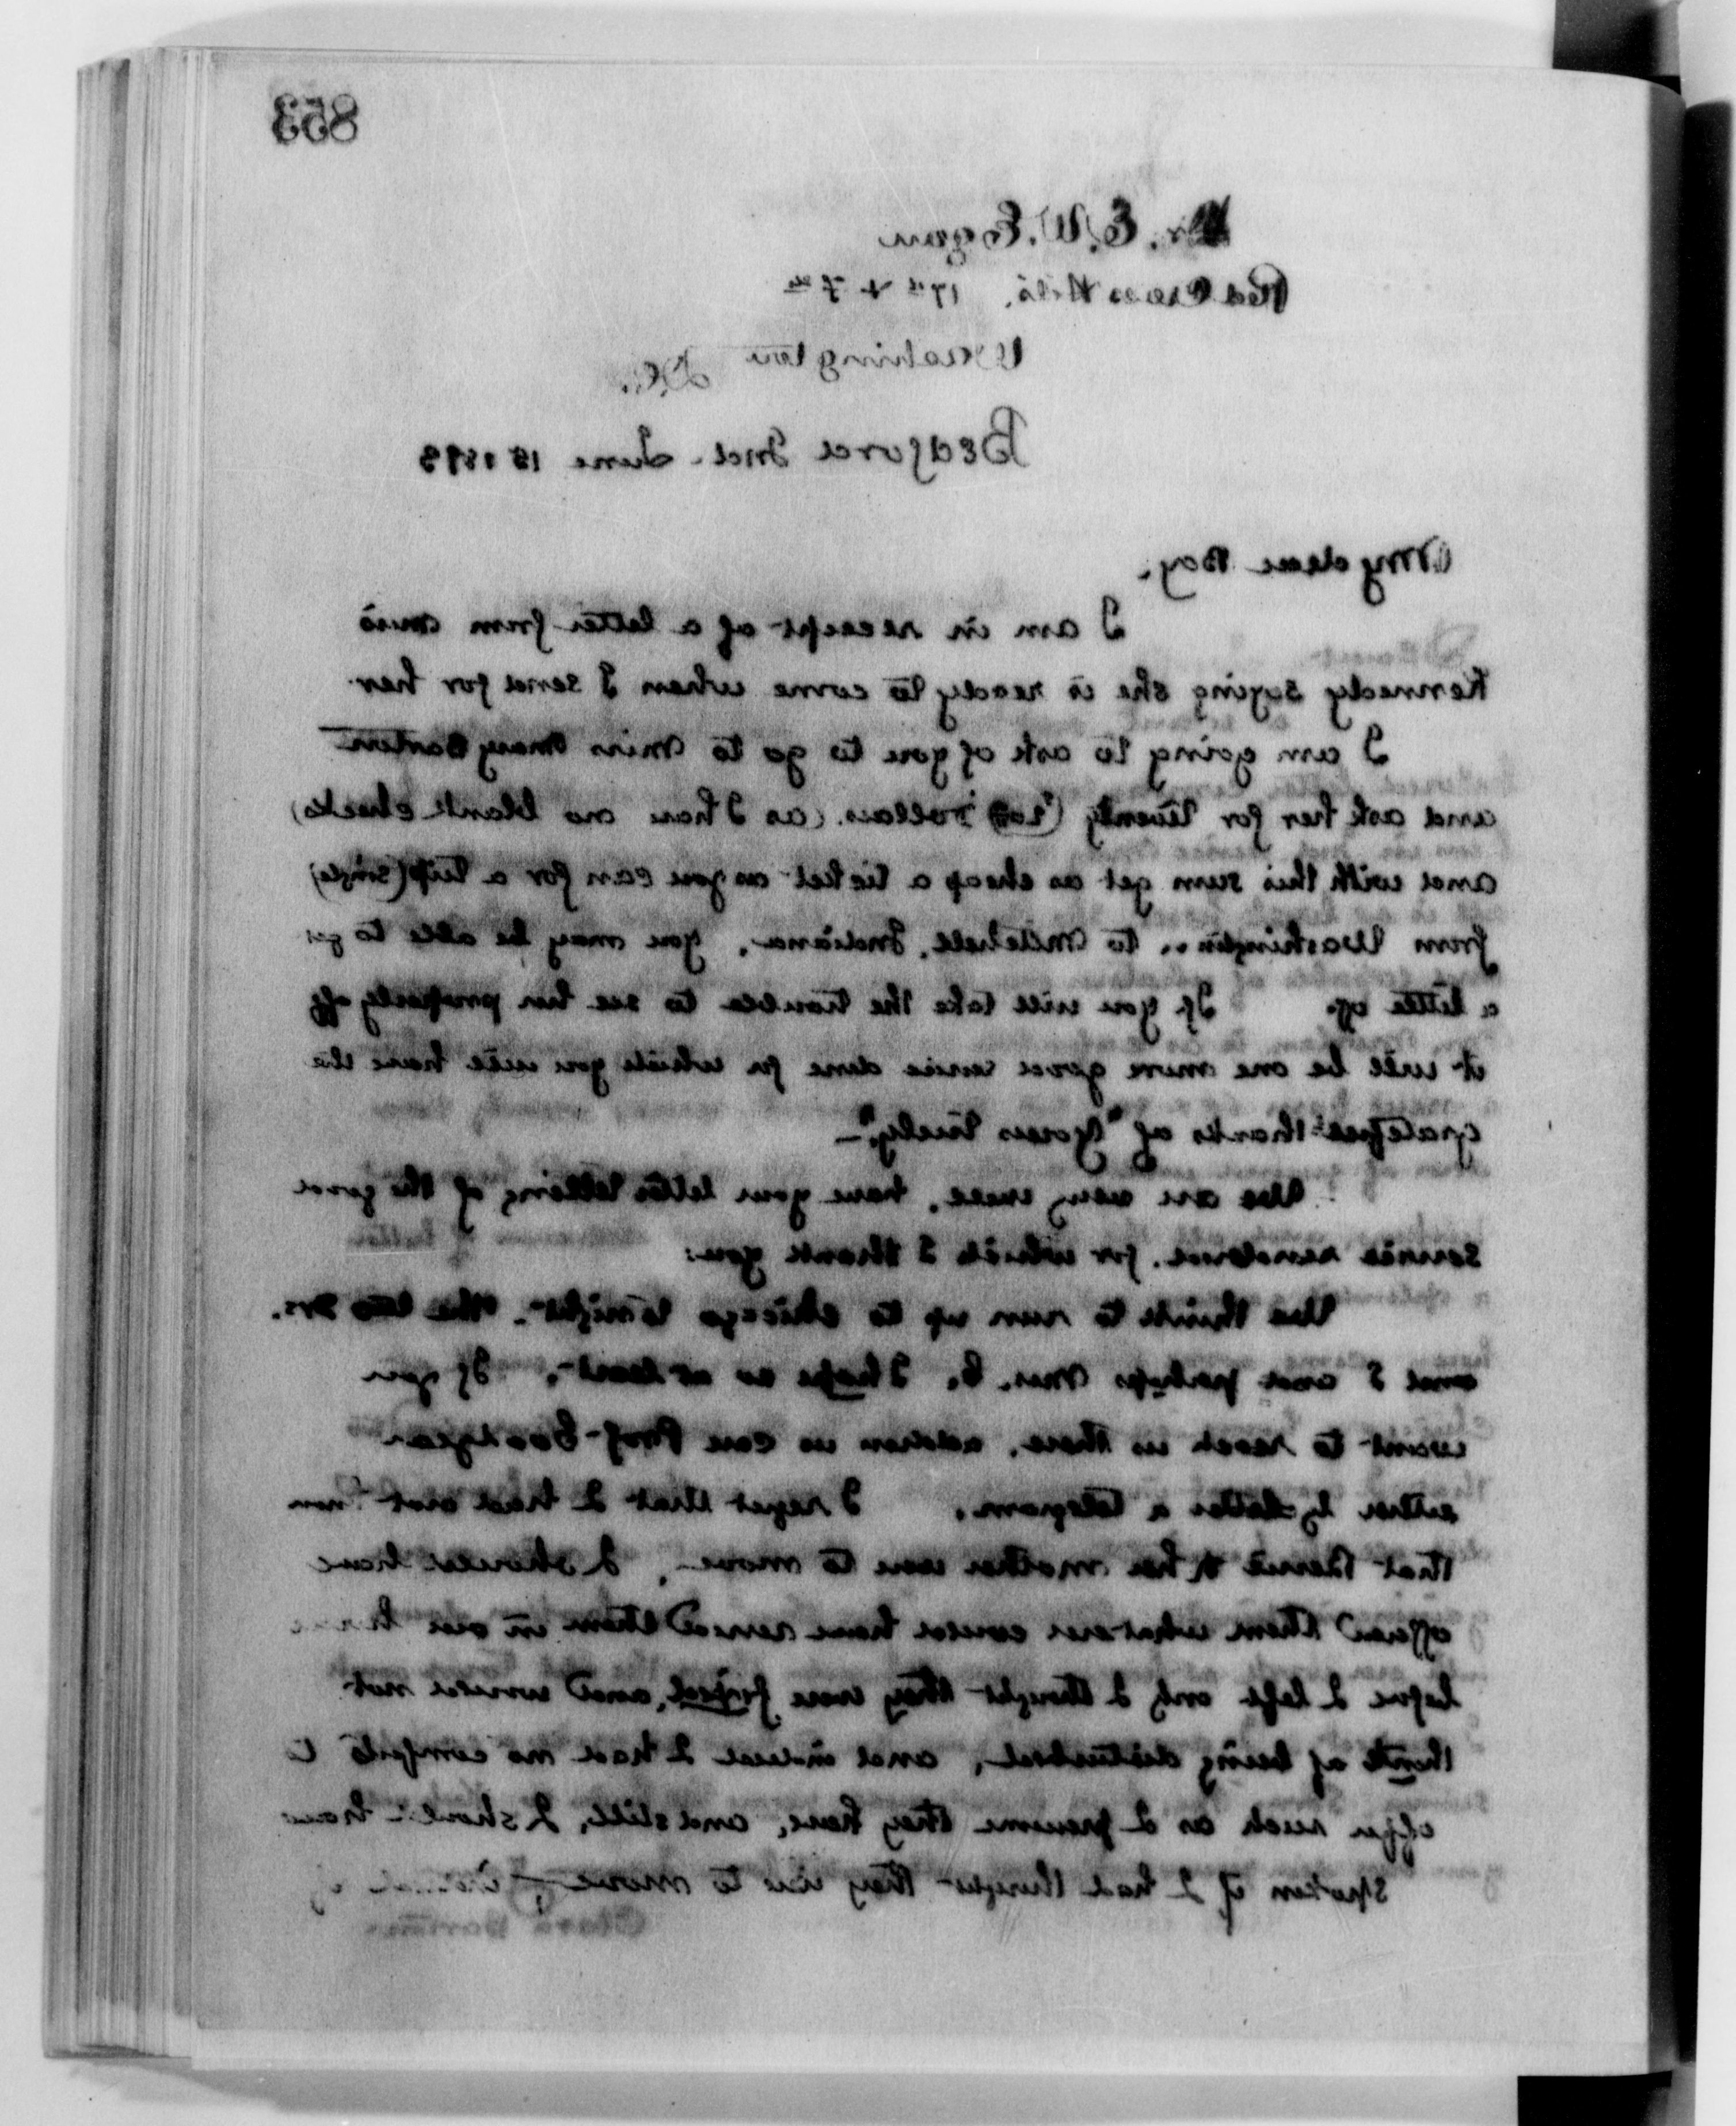 853
Mr. E. W. Egan
Red Cross Hdqs. 17th & F sts
Washington D.C.
Bedford Ind. June 15 1893
My dear Boy.
I am in receipt of a letter from Miss
Kennedy saying she is ready to come when I send for her
I am going to ask of you to go to Miss Mary Barton
and ask her for twenty (20) Dollars. (as I have no blank checks)
and with this sum get as cheap a ticket as you can for a trip (single)
from Washington to Mitchell, Indiana. You may be able to get
a little off. If you will take the trouble to see her properly off
it will be one more good service done for which you will have the
grateful thanks of "Yours Truly".
We are very well, have your letter telling of the good
service rendered. for which I thank you:
We think to run up to Chicago tonight. The two Drs.
and I and perhaps Mrs. G. I hope so at least. If you
want to reach us there, address us care Prof Goodyear
either by letter a telegram. I regret that I had not known
that Bernie & her mother were to move. I should have
offered them what ever could have served them in our house
before I left only I thought they were fixed, and would not
think of being disturbed, and indeed I had no comforts to
offer such as I presume they have, and still, I should have
spoken if I had thought they were to move
Clara Barton